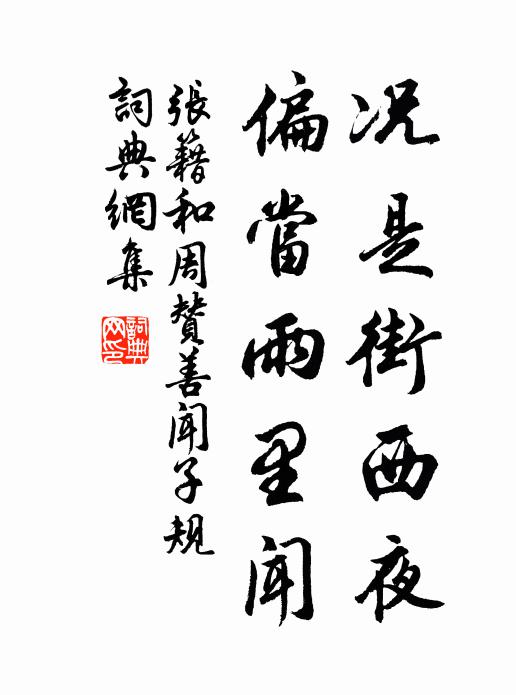 况是街西夜
偏當雨里聞
張籍和周贊善聞子規
詞典網集
詞典网印